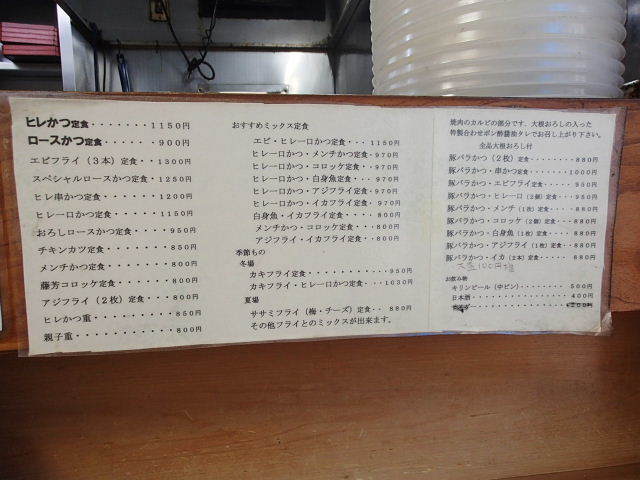 ヒレかつ定食・・・・・・・1150円
ロースかつ定食・・・・・900円
エビフライ（3本）定食・・1300円
スペシャルロースかつ定食・1250円
ヒレ串かつ定食・・・・・・1200円
ヒレ一口かつ定食・・・・・1150円
おろしロースかつ定食・・・950円
チキンカツ定食・・・・・・850円
メンチかつ定食・・・・・・800円
藤芳コロッケ定食・・・・・800円
アジフライ（2枚）定食・・・800円
ヒレかつ重・・・・・・・・850円
親子重・・・・・・・・・・800円
おすすめミックス定食
エビ・ヒレ一口かつ定食・・・1150円
ヒレ一口かつ・メンチかつ定食・970円
ヒレ一口かつ・コロッケ定食・・970円
ヒレ一口かつ・白身魚定食・・・970円
ヒレ一口かつ・アジフライ定食・970円
ヒレ一口かつ・イカフライ定食・970円
白身魚・イカフライ定食・・・・800円
メンチかつ・コロッケ定食・・・800円
アジフライ・イカフライ定食・・800円
季節もの
冬場
カキフライ定食・・・・・・・・・950円
カキフライ・ヒレ一口かつ定食・・1030円
夏場
ササミフライ（梅・チーズ）定食・・880円
その他フライとのミックスが出来ます。
焼肉のカルビの部分です、大根おろしの入った
特製合わせポン酢醤油タレでお召し上がり下さい。
全品大根おろし付
豚バラかつ（2枚）定食・・・・・・・・880円
豚バラかつ・串かつ定食・・・・・・・1000円
豚バラかつ・エビフライ定食・・・・・950円
豚バラかつ・ヒレ一口（2個）定食・・・950円
豚バラかつ・メンチ（1枚）定食・・・・880円
豚バラかつ・コロッケ（2個）定食・・・880円
豚バラかつ・白身魚（1枚）定食・・・・880円
豚バラかつ・アジフライ（1枚）定食・・880円
豚バラかつ・イカ（2本）定食・・・・・880円
大盛100円増
お飲み物
キリンビール（中ビン）・・・・・500円
日本酒・・・・・・・・・・・・400円